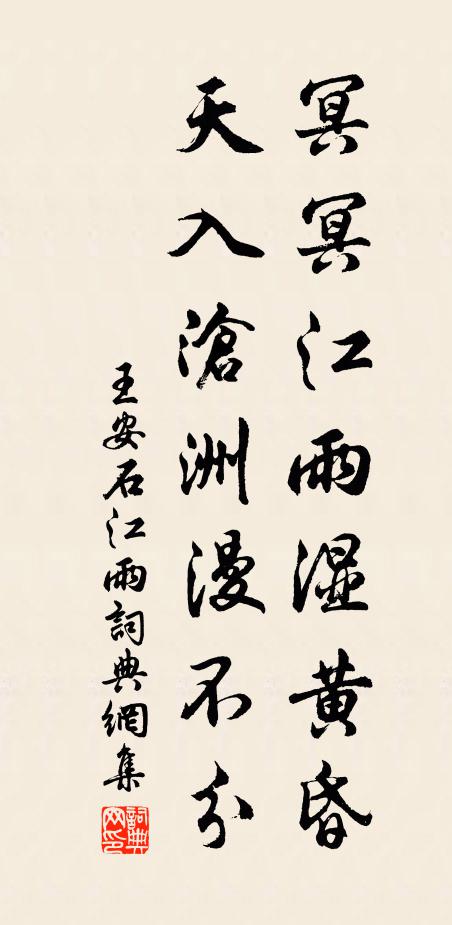 冥冥江雨濕黄昏
天入滄洲漫不分
王安石江雨詞典網集
詞典網印